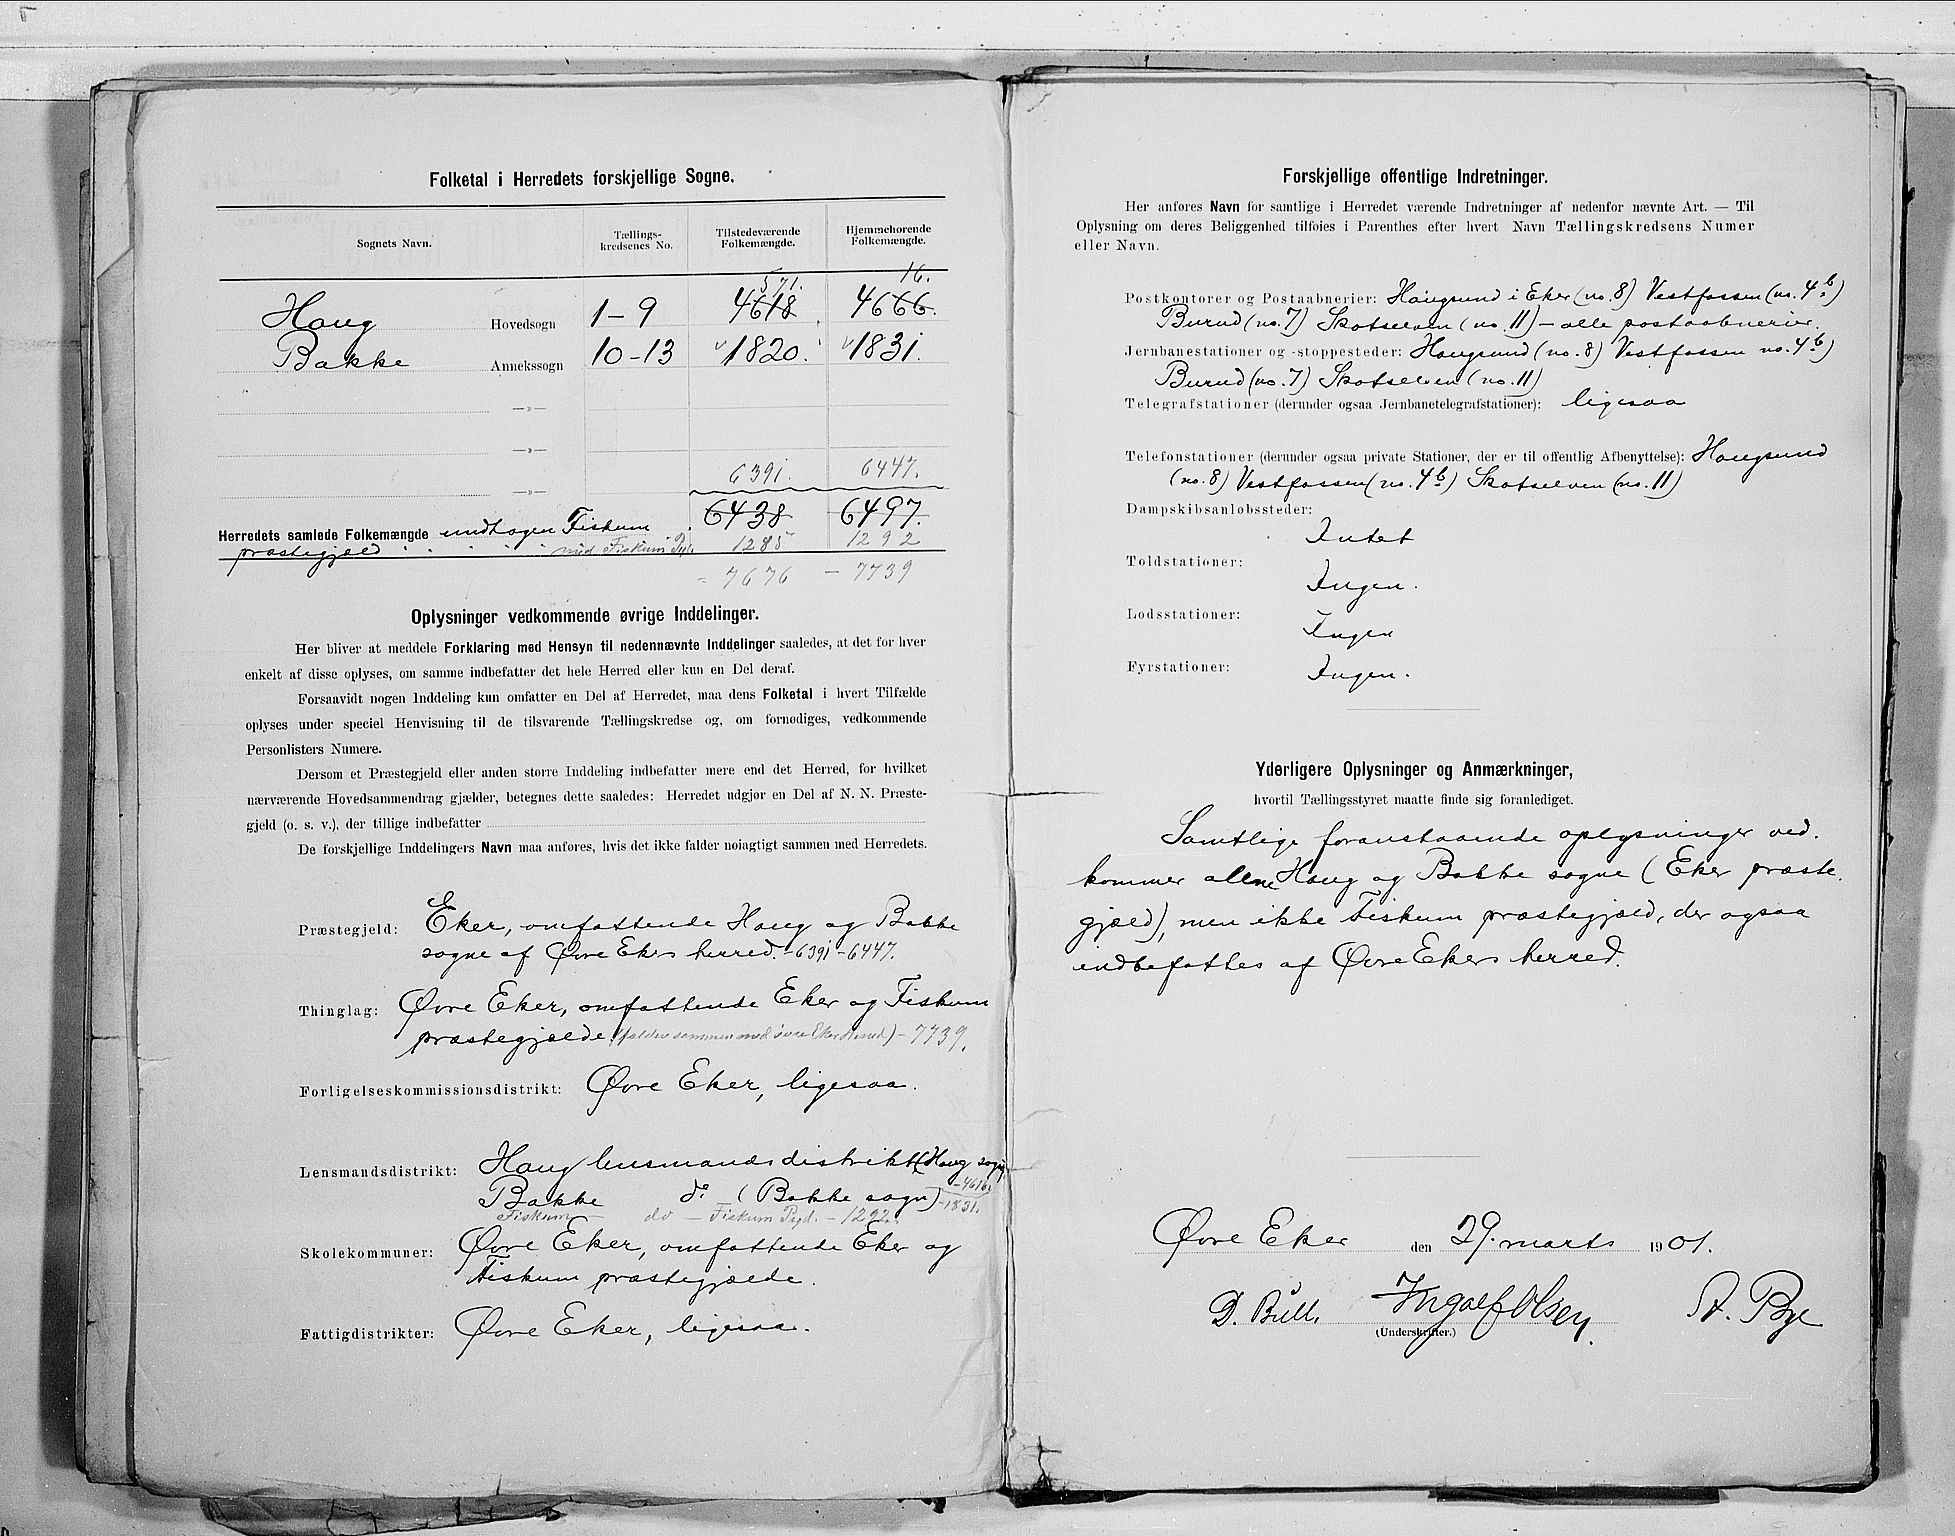 Folketal i Herredets forskjellige Sogne.
Sognets Navn. Tællings-kredsenes No. Tilstedeværende Folkemængde. Hjemmehørende Folkemængde.
571. 16.
Haug Hovedsogn 1-9 4618 4666.
Bakke Annekssogn 10-13 1820. 1831.
—»—
—»—
6391. 6447.
—»—
Herredets samlede Folkemængde undtagen Fiskum 6438 6497.
præstegjeld med Fiskum Pgd. 1285 1292
= 7676 — 7739
Oplysninger vedkommende øvrige Inddelinger.
Her bliver at meddele Forklaring med Hensyn til nedennævnte Inddelinger saaledes, at det for hver
enkelt af disse oplyses, om samme indbefatter det hele Herred eller kun en Del deraf.
Forsaavidt nogen Inddeling kun omfatter en Del af Herredet, maa dens Folketal i hvert Tilfælde
oplyses under speciel Henvisning til de tilsvarende Tællingskredse og, om fornødiges, vedkommende
Personlisters Numere.
Dersom et Præstegjeld eller anden større Inddeling indbefatter mere end det Herred, for hvilket
nærværende Hovedsammendrag gjælder, betegnes dette saaledes: Herredet udgjør en Del af N. N. Præste-
gjeld (o. s. v.), der tillige indbefatter
De forskjellige Inddelingers Navn maa anføres, hvis det ikke falder nøiagtigt sammen med Herredets.
Præstegjeld: Eker, omfattende Haug og Bakke
sogne af Øvre Ekers herred. - 6391 - 6447.
Thinglag: Øvre Eker, omfattende Eker og Fiskum
præstegjælde. (falder sammen med øvre Eker Herred) - 7739.
Forligelseskommissionsdistrikt: Øvre Eker, ligesaa.
Lensmandsdistrikt: Haug lensmandsdistrikt (Haug sogn)
- 4616.
Bakke do (Bakke sogn) - 1831.
Fiskum do — Fiskum Pgd. - 1292.
Skolekommuner: Øvre Eker, omfattende Eker og
Fiskum præstegjælde.
Fattigdistrikter: Øvre Eker, ligesaa.
Forskjellige offentlige Indretninger.
Her anføres Navn for samtlige i Herredet værende Indretninger af nedenfor nævnte Art. — Til
Oplysning om deres Beliggenhed tilføies i Parenthes efter hvert Navn Tællingskredsens Numer
eller Navn.
Postkontorer og Postaabnerier: Haugsund i Eker (no. 8) Vestfossen (no. 4b)
Burud (no. 7) Skotselven (no. 11) — alle postaabnerier.
Jernbanestationer og -stoppesteder: Haugsund (no. 8) Vestfossen no. 4b)
Burud (no. 7) Skotselven (no. 11)
Telegrafstationer (derunder ogsaa Jernbanetelegrafstationer): ligesaa
Telefonstationer (derunder ogsaa private Stationer, der er til offentlig Afbenyttelse): Haugsund
(no. 8) Vestfossen (no. 4b) Skotselven (no. 11)
Dampskibsanløbssteder:
Intet
Toldstationer:
Ingen.
Lodsstationer:
Ingen
Fyrstationer:
Ingen.
Yderligere Oplysninger og Anmærkninger,
hvortil Tællingsstyret maatte finde sig foranlediget.
Samtlige foranstaaende oplysninger ved-
kommer alene Haug og Bakke sogne (Eker præste-
gjæld), men ikke Fiskum præstegjæld, der ogsaa
indbefattes af Øvre Ekers herred.
Øvre Eker den 29. marts 1901.
D. Bull. Ingolf Olsen. A. Bye
(Underskrifter.)